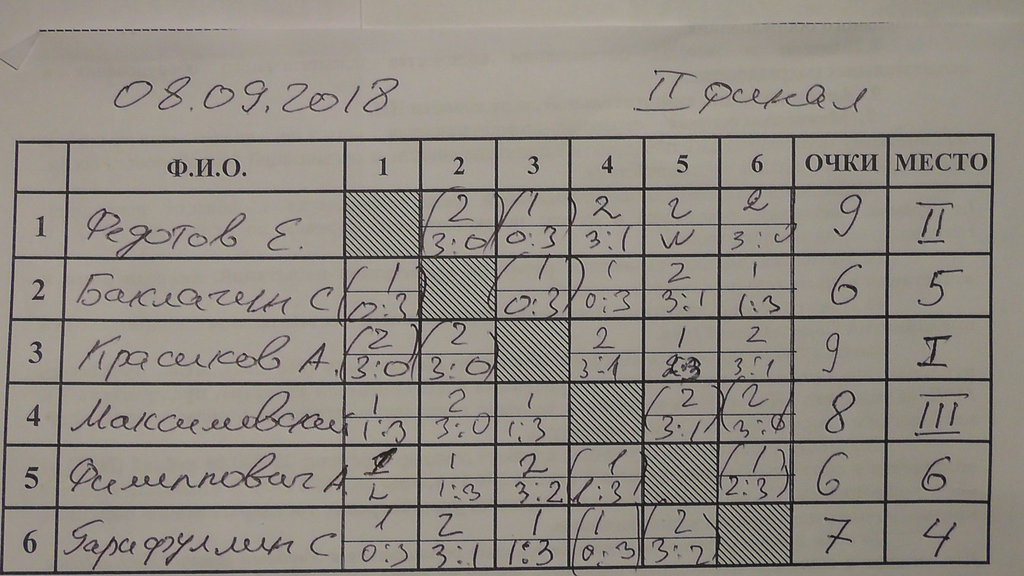 08.09.2018 II финал
Ф.И.О. 1 2 3 4 5 6 ОЧКИ МЕСТО
1 Федотов Е. (2 3:0) (1 0:3) 2 3:1 2 W 2 3:0 9 II
2 Баклагин С (1 0:3) (1 0:3) 1 0:3 2 3:1 1 1:3 6 5
3 Красиков А. (2 3:0) (2 3:0) 2 3:1 1 2:3 2 3:1 9 I
4 Максимовский 1 1:3 2 3:0 1 1:3 (2 3:1) (2 3:0) 8 III
5 Филиппович А 1 L 1 1:3 2 3:2 (1 1:3) (1 2:3) 6 6
6 Гарафуллин С 1 0:3 2 3:1 1 1:3 (1 0:3) (2 3:2) 7 4